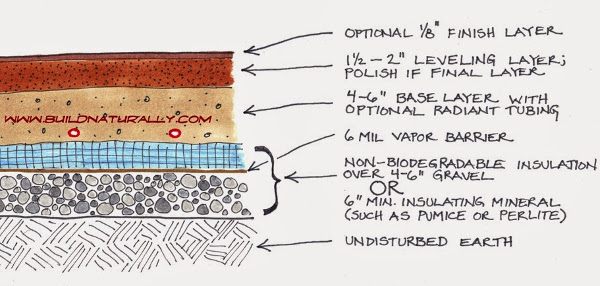 OPTIONAL 1/8" FINISH LAYER
1 1/2 - 2" LEVELING LAYER;
POLISH IF FINAL LAYER
4-6" BASE LAYER WITH
OPTIONAL RADIANT TUBING
WWW.BUILDNATURALLY.COM
6 MIL VAPOR BARRIER
NON-BIODEGRADABLE INSULATION
OVER 4-6" GRAVEL
OR
6" MIN. INSULATING MINERAL
(SUCH AS PUMICE OR PERLITE)
UNDISTURBED EARTH